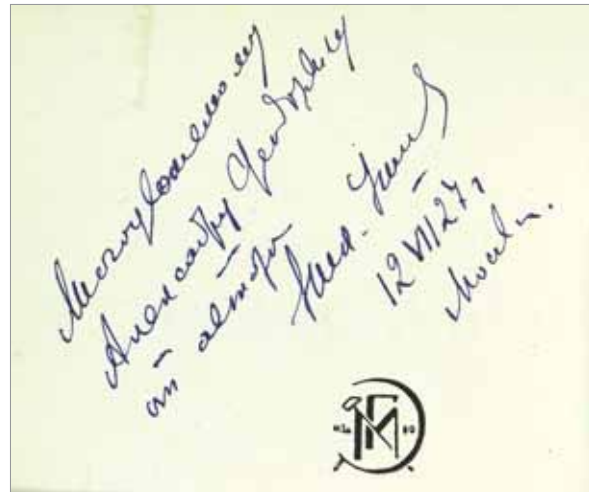 Многоуважаемому
Александру Федоровичу
от автора
12 VII 27 г
Москва.